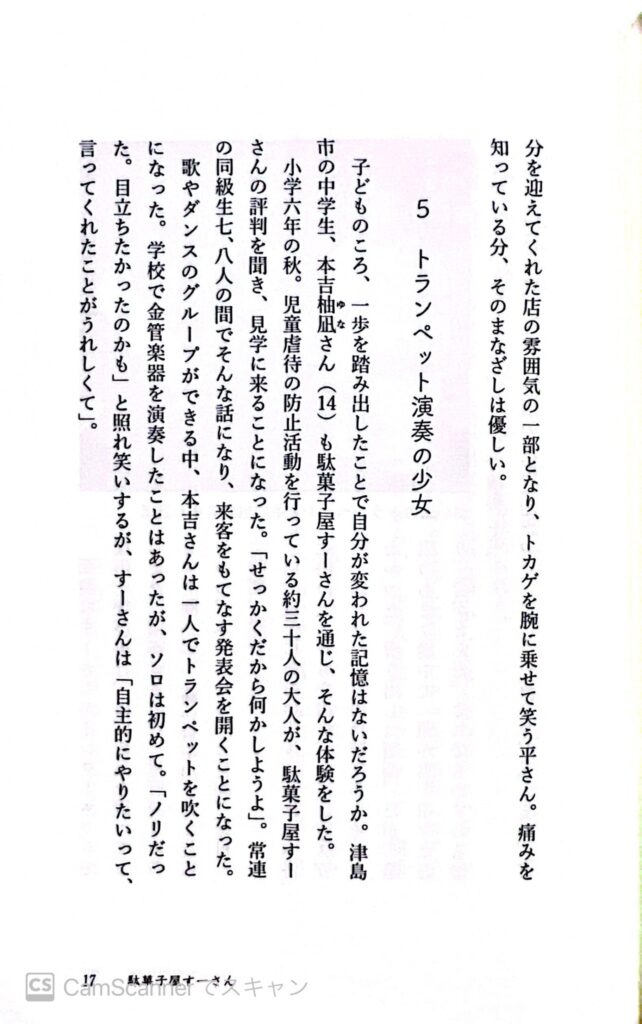 分を迎えてくれた店の雰囲気の一部となり、トカゲを腕に乗せて笑う平さん。痛みを
知っている分、そのまなざしは優しい。
5 トランペット演奏の少女
子どものころ、一歩を踏み出したことで自分が変われた記憶はないだろうか。津島
市の中学生、本吉柚凪さん（14）も駄菓子屋すーさんを通じ、そんな体験をした。
ゆな
小学六年の秋。児童虐待の防止活動を行っている約三十人の大人が、駄菓子屋すー
さんの評判を聞き、見学に来ることになった。「せっかくだから何かしようよ」。常連
の同級生七、八人の間でそんな話になり、来客をもてなす発表会を開くことになった。
歌やダンスのグループができる中、本吉さんは一人でトランペットを吹くこと
になった。学校で金管楽器を演奏したことはあったが、ソロは初めて。「ノリだっ
た。目立ちたかったのかも」と照れ笑いするが、すーさんは「自主的にやりたいって、
言ってくれたことがうれしくて」。
17 駄菓子屋すーさん
CS CamScannerでスキャン